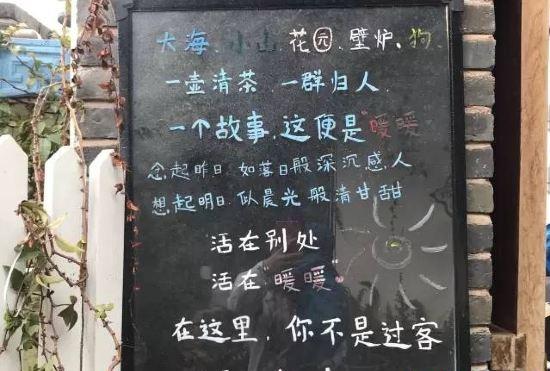 大海、小山、花园、壁炉、狗
一壶清茶 一群归人
一个故事,这便是“暖暖
念起昨日 如落日般深沉感人
想起明日 似晨光般清甘甜
活在别处
活在“暖暖”
在这里,你不是过客